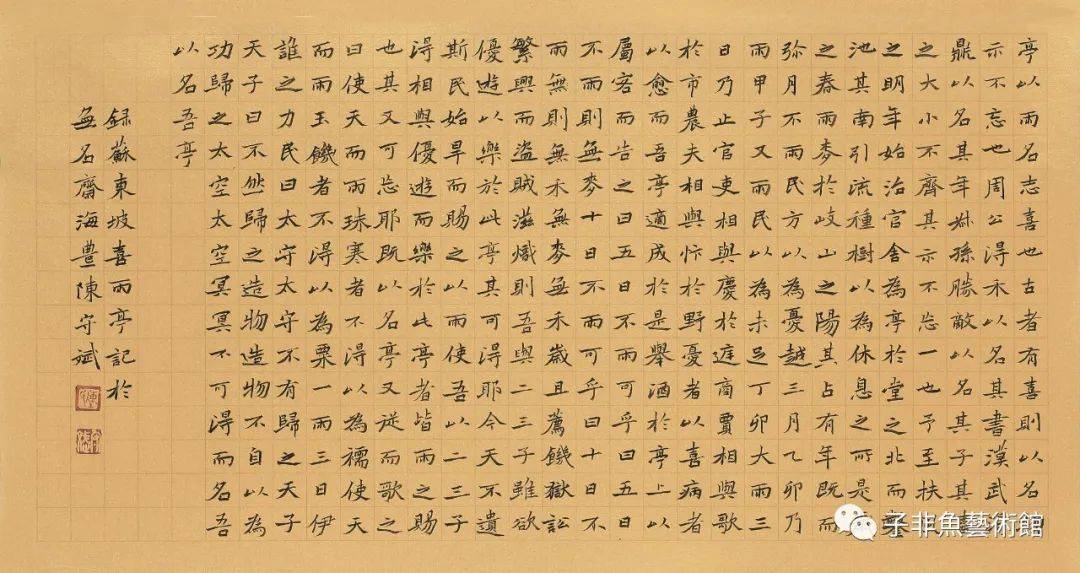 亭以雨名志喜也古者有喜則以名
示不忘也周公得禾以名其書漢武
鼎以名其年叔孫勝敵以名其子其
之大小不齊其示不忘一也予至扶
之明年始治官舍為亭於堂之北而
池其南引流種樹以為休息之所是
之春雨麥於岐山之陽其占有年既而
彌月不雨民方以為憂越三月乙卯乃
雨甲子又雨民以為未足丁卯大雨三
日乃止官吏相與慶於庭商賈相與歌
於市農夫相與忭於野憂者以喜病者
以愈而吾亭適成於是舉酒於亭上以
屬客而告之曰五日不雨可乎曰五日
不雨則無麥十日不雨可乎曰十日不
雨無則無禾無麥無禾歲且薦饑獄訟
繁興而盜賊滋熾則吾與二三子雖欲
優遊以樂於此亭其可得耶今天不遺
斯民始旱而賜之以雨使吾以二三子
得相與優遊而樂於此亭者皆雨之賜
也其又可忘耶既以名亭又從而歌之
曰使天而雨珠寒者不得以為襦使天
而雨玉饑者不得以為粟一雨三日伊
誰之力民曰太守太守不有歸之天子
天子曰不然歸之造物造物不自以為
功歸之太空太空冥冥不可得而名吾
以名吾亭
錄蘇東坡喜雨亭記於
無名齋海豐陳守斌
子非魚藝術館